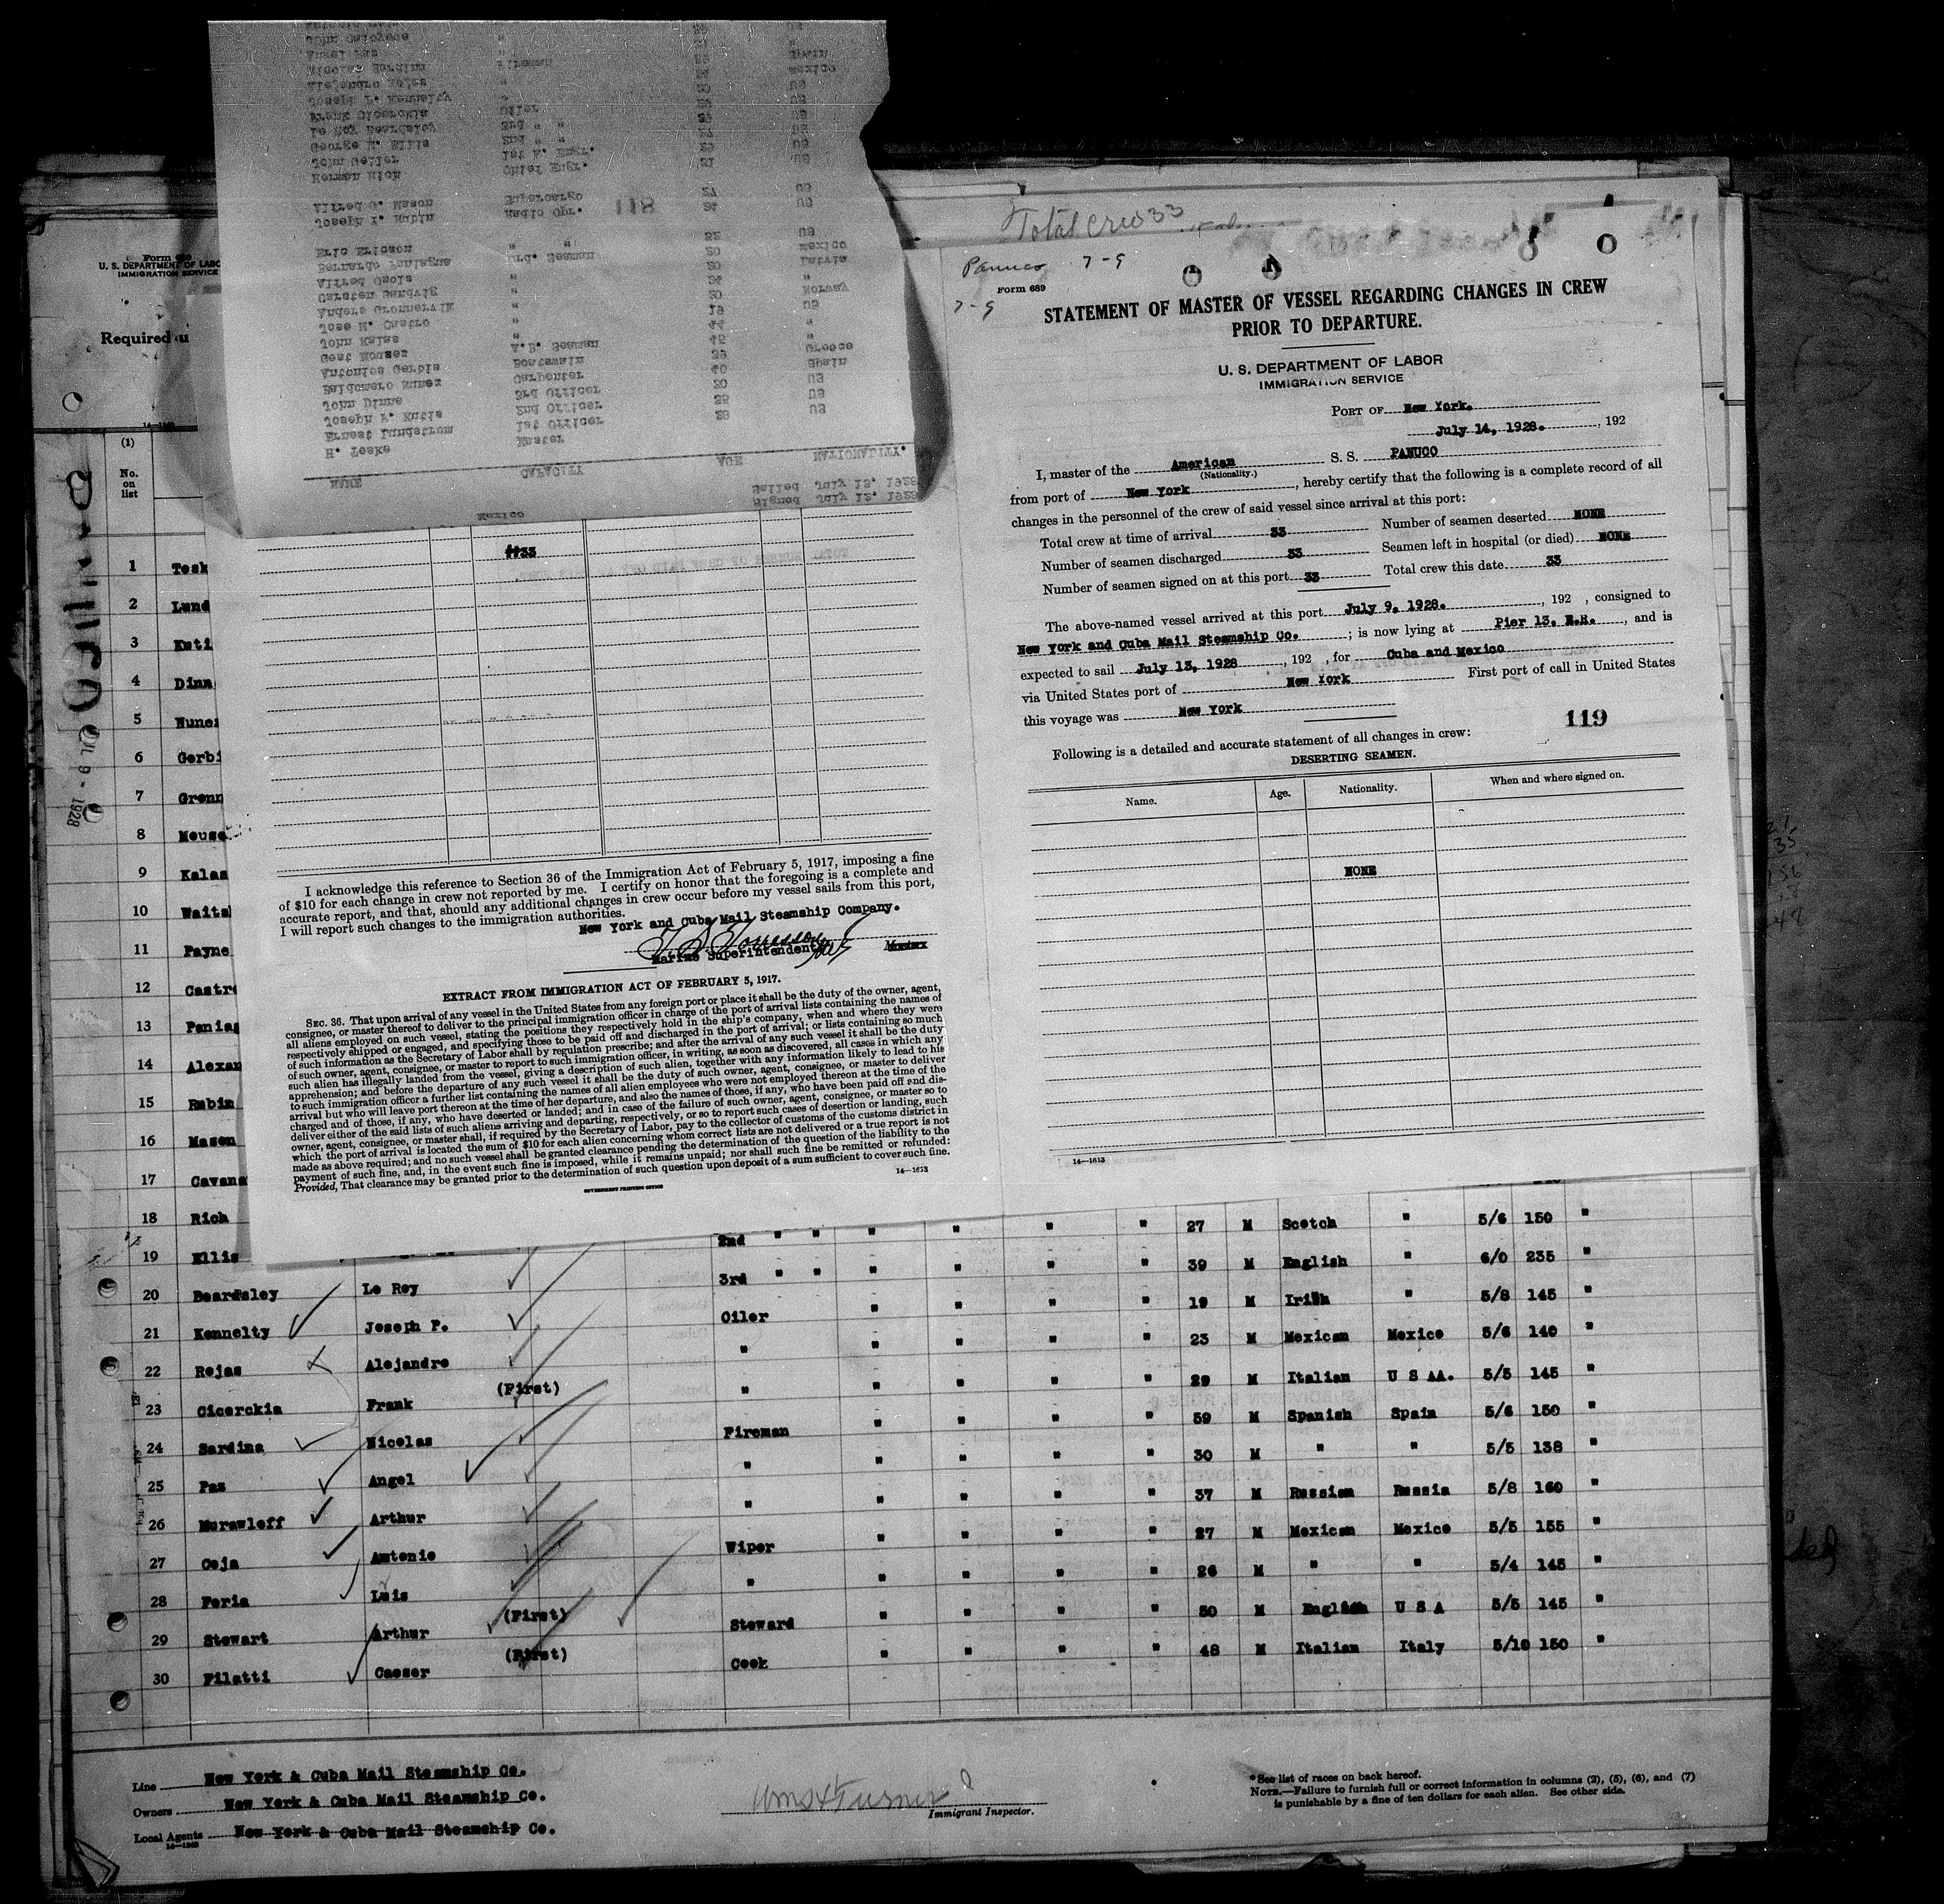 Total crew 33
Panuco 7-9
7-9
Form 689
STATEMENT OF MASTER OF VESSEL REGARDING CHANGES IN CREW
PRIOR TO DEPARTURE.
U. S. DEPARTMENT OF LABOR
IMMIGRATION SERVICE
PORT OF New York.
July 14, 1928. , 192
I, master of the American S. S. PANUCO
(Nationality.)
from port of New York , hereby certify that the following is a complete record of all
changes in the personnel of the crew of said vessel since arrival at this port:
Total crew at time of arrival 33 Number of seamen deserted NONE
Number of seamen discharged 33 Seamen left in hospital (or died) NONE
Number of seamen signed on at this port 33 Total crew this date 33
The above-named vessel arrived at this port July 9, 1928. , 192 , consigned to
New York and Cuba Mail Steamship Co. ; is now lying at Pier 13. E.R. , and is
expected to sail July 13, 1928 , 192 , for Cuba and Mexico
via United States port of New York First port of call in United States
this voyage was New York
119
Following is a detailed and accurate statement of all changes in crew:
DESERTING SEAMEN.
Name. Age. Nationality. When and where signed on.
NONE
14—1613
NAME CAPACITY AGE NATIONALITY.
Signed July 12, 1928
Sailed July 13, 1928
Mexico
H. Teske Master
Ernest Lundstrom 1st Officer 29 US
Joseph F. Kutis 2nd Officer 35 US
John Dinne 3rd Officer 30 US
Baldomero Nunez Carpenter 40 Spain
Antonios Gerbis Boatswain 39 Greece
Gest Mouser A.B. Seaman 45 "
John Kalas " 44 "
Jose M. Castro " 19 US
Anders Gronnervik " 20 Norway
Carsten Sandvig " 24 "
Alfred Osols " 20 Latvia
Bernardo Paniagna Ord. Seaman 20 Mexico
Eric Ericson " " 22 US
Joseph Y. Rubin Radio Opr. 118 24 US
Alfred G. Mason Supercargo 27 US
Herman Rich Chief Engr. 31 US
John Geller 1st A. Engr.
George M. Ellis 2nd " "
Le Roy Beardsley 3rd " "
Frank Cicerckia Oiler
Joseph P. Kennelty "
Alejandro Rojas "
Nicolas Sardina Fireman
Angel Pas
##33
I acknowledge this reference to Section 36 of the Immigration Act of February 5, 1917, imposing a fine
of $10 for each change in crew not reported by me. I certify on honor that the foregoing is a complete and
accurate report, and that, should any additional changes in crew occur before my vessel sails from this port,
I will report such changes to the immigration authorities.
New York and Cuba Mail Steamship Company.
Marine Superintendent
EXTRACT FROM IMMIGRATION ACT OF FEBRUARY 5, 1917.
SEC. 36. That upon arrival of any vessel in the United States from any foreign port or place it shall be the duty of the owner, agent,
consignee, or master thereof to deliver to the principal immigration officer in charge of the port of arrival lists containing the names of
all aliens employed on such vessel, stating the positions they respectively hold in the ship's company, when and where they were
respectively shipped or engaged, and specifying those to be paid off and discharged in the port of arrival; or lists containing so much
of such information as the Secretary of Labor shall by regulation prescribe; and after the arrival of any such vessel it shall be the duty
of such owner, agent, consignee, or master to report to such immigration officer, in writing, as soon as discovered, all cases in which any
such alien has illegally landed from the vessel, giving a description of such alien, together with any information likely to lead to his
apprehension; and before the departure of any such vessel it shall be the duty of such owner, agent, consignee, or master to deliver
to such immigration officer a further list containing the names of all alien employees who were not employed thereon at the time of the
arrival but who will leave port thereon at the time of her departure, and also the names of those, if any, who have been paid off and dis-
charged and of those, if any, who have deserted or landed; and in case of the failure of such owner, agent, consignee, or master so to
deliver either of the said lists of such aliens arriving and departing, respectively, or so to report such cases of desertion or landing, such
owner, agent, consignee, or master shall, if required by the Secretary of Labor, pay to the collector of customs of the customs district in
which the port of arrival is located the sum of $10 for each alien concerning whom correct lists are not delivered or a true report is not
made as above required; and no such vessel shall be granted clearance pending the determination of the question of the liability to the
payment of such fine, and, in the event such fine is imposed, while it remains unpaid; nor shall such fine be remitted or refunded:
Provided, That clearance may be granted prior to the determination of such question upon deposit of a sum sufficient to cover such fine.
GOVERNMENT PRINTING OFFICE 14—1613
U. S. DEPARTMENT OF LABO
IMMIGRATION SERVICE
Required u
PANUCO
JUL 9 - 1928
(1)
No. on list
1 Tesk
2 Lund
3 Kuti
4 Dinn
5 Nunez
6 Gerbi
7 Gronn
8 Mouse
9 Kalas
10 Waits
11 Payne
12 Castro
13 Paniag
14 Alexan
15 Rubin
16 Mason
17 Cavana
18 Rich
19 Ellis 2nd " " " " " " 27 M Scotch " 5/6 150 "
20 Beardsley Le Roy 3rd " " " " " " 39 M English " 6/0 235 "
21 Kennelty Joseph P. Oiler " " " " 19 M Irish " 5/8 145 "
22 Rojas Alejandro " " " " " 23 M Mexican Mexico 5/6 140 "
23 Cicerckia Frank (First) " " " " " 29 M Italian U S AA. 5/5 145 "
24 Sardina Nicolas Fireman " " " " 59 M Spanish Spain 5/6 150 "
25 Pas Angel " " " " " 30 M " " 5/5 138 "
26 Murawleff Arthur " " " " " 37 M Russian Russia 5/8 160 "
27 Ceja Antonio Wiper " " " " 27 M Mexican Mexico 5/5 155 "
28 Feria Luis " " " " " 26 M " " 5/4 145 "
29 Stewart Arthur (First) Steward " " " " 50 M English U S A 5/5 145 "
30 Pilatti Caeser (First) Cook " " " " 48 M Italian Italy 5/10 150 "
Line New York & Cuba Mail Steamship Co.
Owners New York & Cuba Mail Steamship Co.
Local Agents New York & Cuba Mail Steamship Co.
Immigrant Inspector.
*See list of races on back hereof.
NOTE.—Failure to furnish full or correct information in columns (2), (5), (6), and (7)
is punishable by a fine of ten dollars for each alien. See other side.